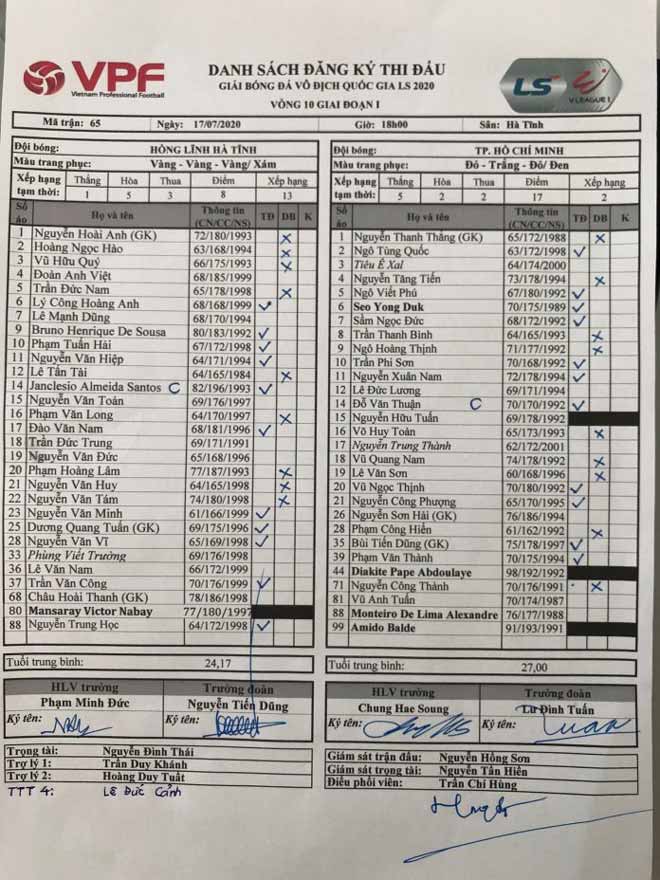 VPF
Vietnam Professional Football
DANH SÁCH ĐĂNG KÝ THI ĐẤU
GIẢI BÓNG ĐÁ VÔ ĐỊCH QUỐC GIA LS 2020
VÒNG 10 GIAI ĐOẠN I
LS
V.LEAGUE 1
Mã trận: 65 Ngày: 17/07/2020 Giờ: 18h00 Sân: Hà Tĩnh
Đội bóng: HỒNG LĨNH HÀ TĨNH
Màu trang phục: Vàng - Vàng - Vàng/ Xám
Xếp hạng tạm thời: Thắng Hòa Thua Điểm Xếp hạng
1 5 3 8 13
Số áo Họ và tên Thông tin (CN/CC/NS) TĐ DB K
1 Nguyễn Hoài Anh (GK) 72/180/1993 x
2 Hoàng Ngọc Hào 63/168/1994 x
3 Vũ Hữu Quý 66/175/1993 x
4 Đoàn Anh Việt 68/185/1999
5 Trần Đức Nam 65/178/1998 x
6 Lý Công Hoàng Anh 68/168/1999 ✓
7 Lê Mạnh Dũng 68/170/1994
9 Bruno Henrique De Sousa 80/183/1992 ✓
10 Phạm Tuấn Hải 67/172/1998 ✓
11 Nguyễn Văn Hiệp 64/171/1994 ✓
12 Lê Tấn Tài 64/165/1984 x
14 Janclesio Almeida Santos C 82/196/1993 ✓
15 Nguyễn Văn Toản 69/176/1997
16 Phạm Văn Long 64/170/1997 x
17 Đào Văn Nam 68/181/1996 ✓
18 Trần Đức Trung 69/171/1991
19 Nguyễn Văn Đức 65/168/1996
20 Phạm Hoàng Lâm 77/187/1993 x
21 Nguyễn Văn Huy 64/165/1998 x
22 Nguyễn Văn Tám 74/180/1998 x
23 Nguyễn Văn Minh 61/166/1999 ✓
25 Dương Quang Tuấn (GK) 69/175/1996 ✓
28 Nguyễn Văn Vĩ 65/169/1998 ✓
33 Phùng Viết Trường 69/176/1998
36 Lê Văn Nam 66/172/1999
37 Trần Văn Công 70/176/1999 ✓
68 Châu Hoài Thanh (GK) 78/186/1998
80 Mansaray Victor Nabay 77/180/1997
88 Nguyễn Trung Học 64/172/1998 ✓
Tuổi trung bình: 24,17
HLV trưởng Trưởng đoàn
Phạm Minh Đức Nguyễn Tiến Dũng
Ký tên: Ký tên:
Trọng tài: Nguyễn Đình Thái
Trợ lý 1: Trần Duy Khánh
Trợ lý 2: Hoàng Duy Tuất
TTT 4: Lê Đức Cảnh
Đội bóng: TP. HỒ CHÍ MINH
Màu trang phục: Đỏ - Trắng - Đỏ/ Đen
Xếp hạng tạm thời: Thắng Hòa Thua Điểm Xếp hạng
5 2 2 17 2
Số áo Họ và tên Thông tin (CN/CC/NS) TĐ DB K
1 Nguyễn Thanh Thắng (GK) 65/172/1988 x
2 Ngô Tùng Quốc 63/172/1998 ✓
3 Tiêu Ê Xal 64/174/2000
4 Nguyễn Tăng Tiến 73/178/1994 x
5 Ngô Viết Phú 67/180/1992 ✓
6 Seo Yong Duk 70/175/1989 ✓
7 Sầm Ngọc Đức 68/172/1992 ✓
8 Trần Thanh Bình 64/165/1993 x
9 Ngô Hoàng Thịnh 71/177/1992 x
10 Trần Phi Sơn 70/168/1992 ✓
11 Nguyễn Xuân Nam 72/178/1994 ✓
12 Lê Đức Lương 69/171/1994
14 Đỗ Văn Thuận C 70/170/1992 ✓
15 Nguyễn Hữu Tuấn 69/178/1992
16 Võ Huy Toàn 65/173/1993 x
17 Nguyễn Trung Thành 62/172/2001
18 Vũ Quang Nam 74/178/1992 x
19 Lê Văn Sơn 60/168/1996 x
20 Vũ Ngọc Thịnh 70/180/1992 ✓
21 Nguyễn Công Phượng 65/170/1995 ✓
26 Nguyễn Sơn Hải (GK) 76/186/1994
28 Phạm Công Hiển 61/162/1992 x
35 Bùi Tiến Dũng (GK) 75/178/1997 ✓
39 Phạm Văn Thành 70/175/1994 ✓
44 Diakite Pape Abdoulaye 98/192/1992
71 Nguyễn Công Thành 70/176/1991 x
81 Vũ Anh Tuấn 70/174/1987
88 Monteiro De Lima Alexandre 76/177/1988
99 Amido Balde 91/193/1991
Tuổi trung bình: 27,00
HLV trưởng Trưởng đoàn
Chung Hae Soung Lư Đình Tuấn
Ký tên: Ký tên:
Giám sát trận đấu: Nguyễn Hồng Sơn
Giám sát trọng tài: Nguyễn Tấn Hiền
Điều phối viên: Trần Chí Hùng